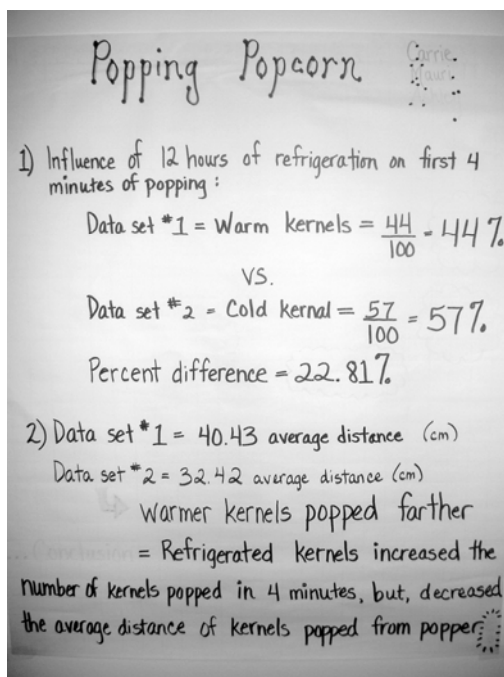 Popping Popcorn
Carrie
Mauri
1) Influence of 12 hours of refrigeration on first 4
minutes of popping :
Data set #1 = Warm kernels = 44/100 - 44%
VS.
Data set #2 - Cold kernal = 57/100 = 57%
Percent difference = 22.81%
2) Data set #1 = 40.43 average distance (cm)
Data set #2 = 32.42 average distance (cm)
Warmer kernels popped farther
...Conclusion = Refrigerated kernels increased the
number of kernels popped in 4 minutes, but, decreased
the average distance of kernels popped from popper